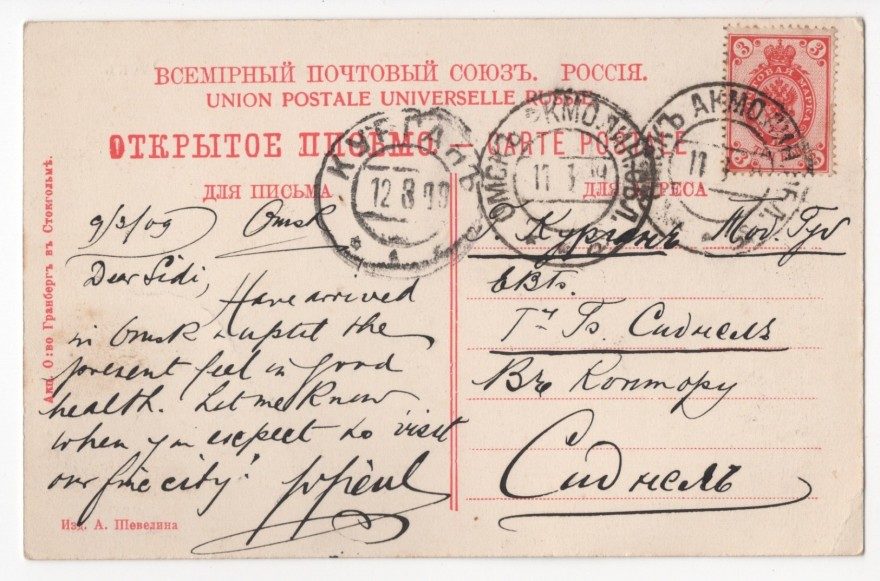 ВСЕМІРНЫЙ ПОЧТОВЫЙ СОЮЗЪ. РОССІЯ.
UNION POSTALE UNIVERSELLE RUSSIE
ОТКРЫТОЕ ПИСЬМО — CARTE POSTALE
ДЛЯ ПИСЬМА
ДЛЯ АДРЕСА
3 3
ПОЧТОВАЯ МАРКА
3 3
КУРГАНЪ
12 8 09
ОМСКЪ АКМОЛИН. ОБЛ.
11
ОМСКЪ АКМОЛИН. ОБЛ.
11
9/3/09 Omsk
Dear Sidi,
Have arrived
in Omsk & uptil the
present feel in good
health. Let me know
when you expect to visit
our fine city!
Курганъ Тоб. Губ
ЕВБ.
Гн Гъ. Сиднелъ
Въ Контору
Сиднелъ
Акц. О:во Гранбергъ въ Стокгольмѣ.
Изд. А. Шевелина